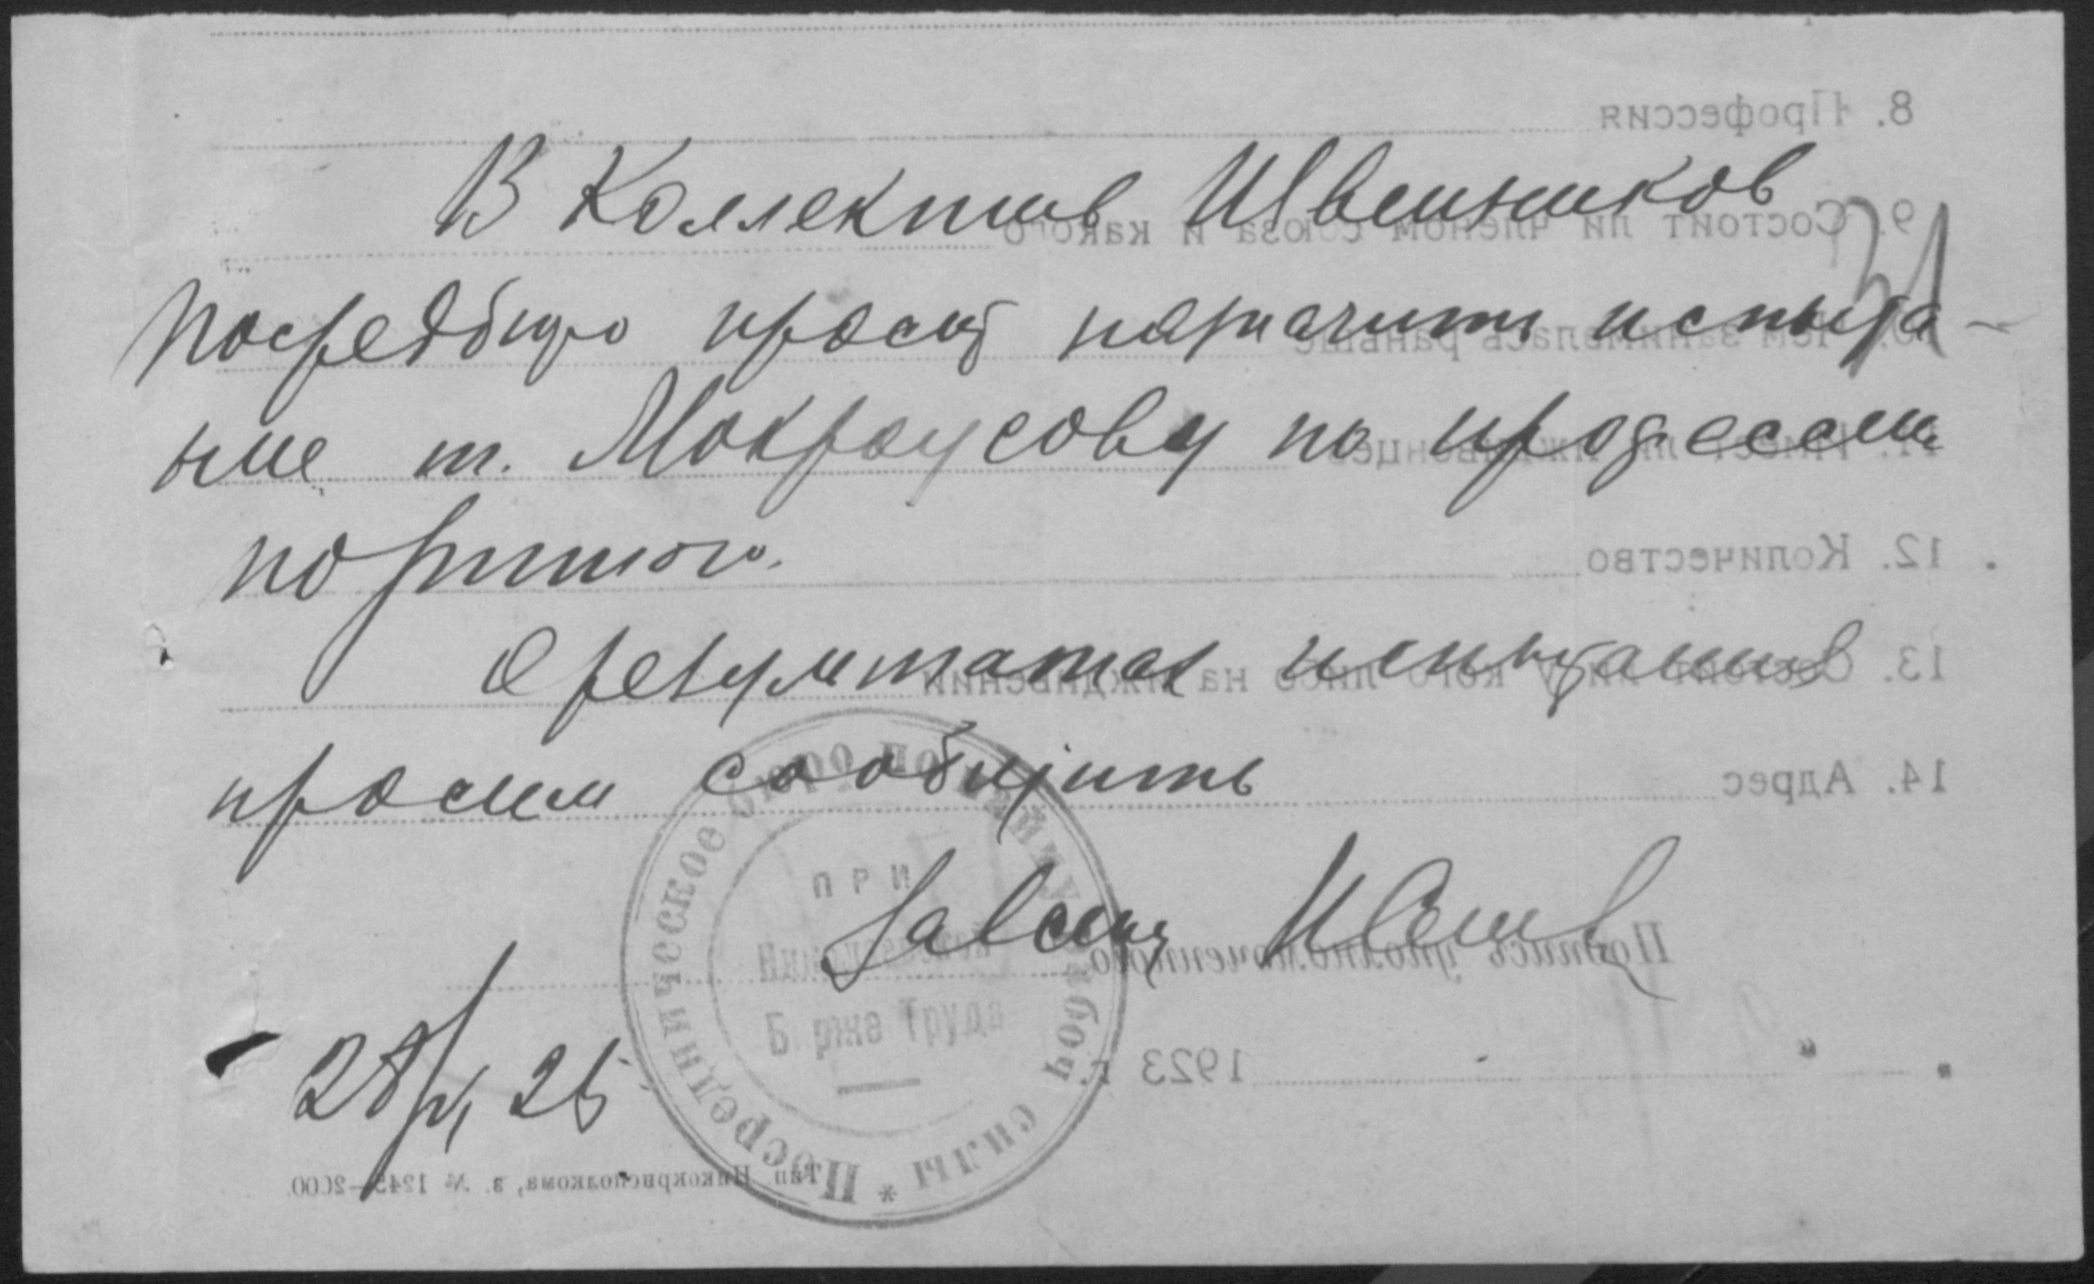 В Коллектив Швейников
31
Посредбюро просит назначить испыта-
ние т. Мокроусову по професси
портного.
О результатах испытания
просим сообщить
Посредническое бюро по найму рабоч силы *
ПРИ
Бирже Труда
Завсекц
28/VI 26
8. Профессия
9. Состоит ли членом союза и какого
10. Чем занималась раньше
11. Имеет ли иждивенцев
12. Количество
13. Состоит ли у кого либо на иждивении
14. Адрес
Подпись уполномоченного
1923 г.
Тип Никокрисполкома, з. № 1245—2000